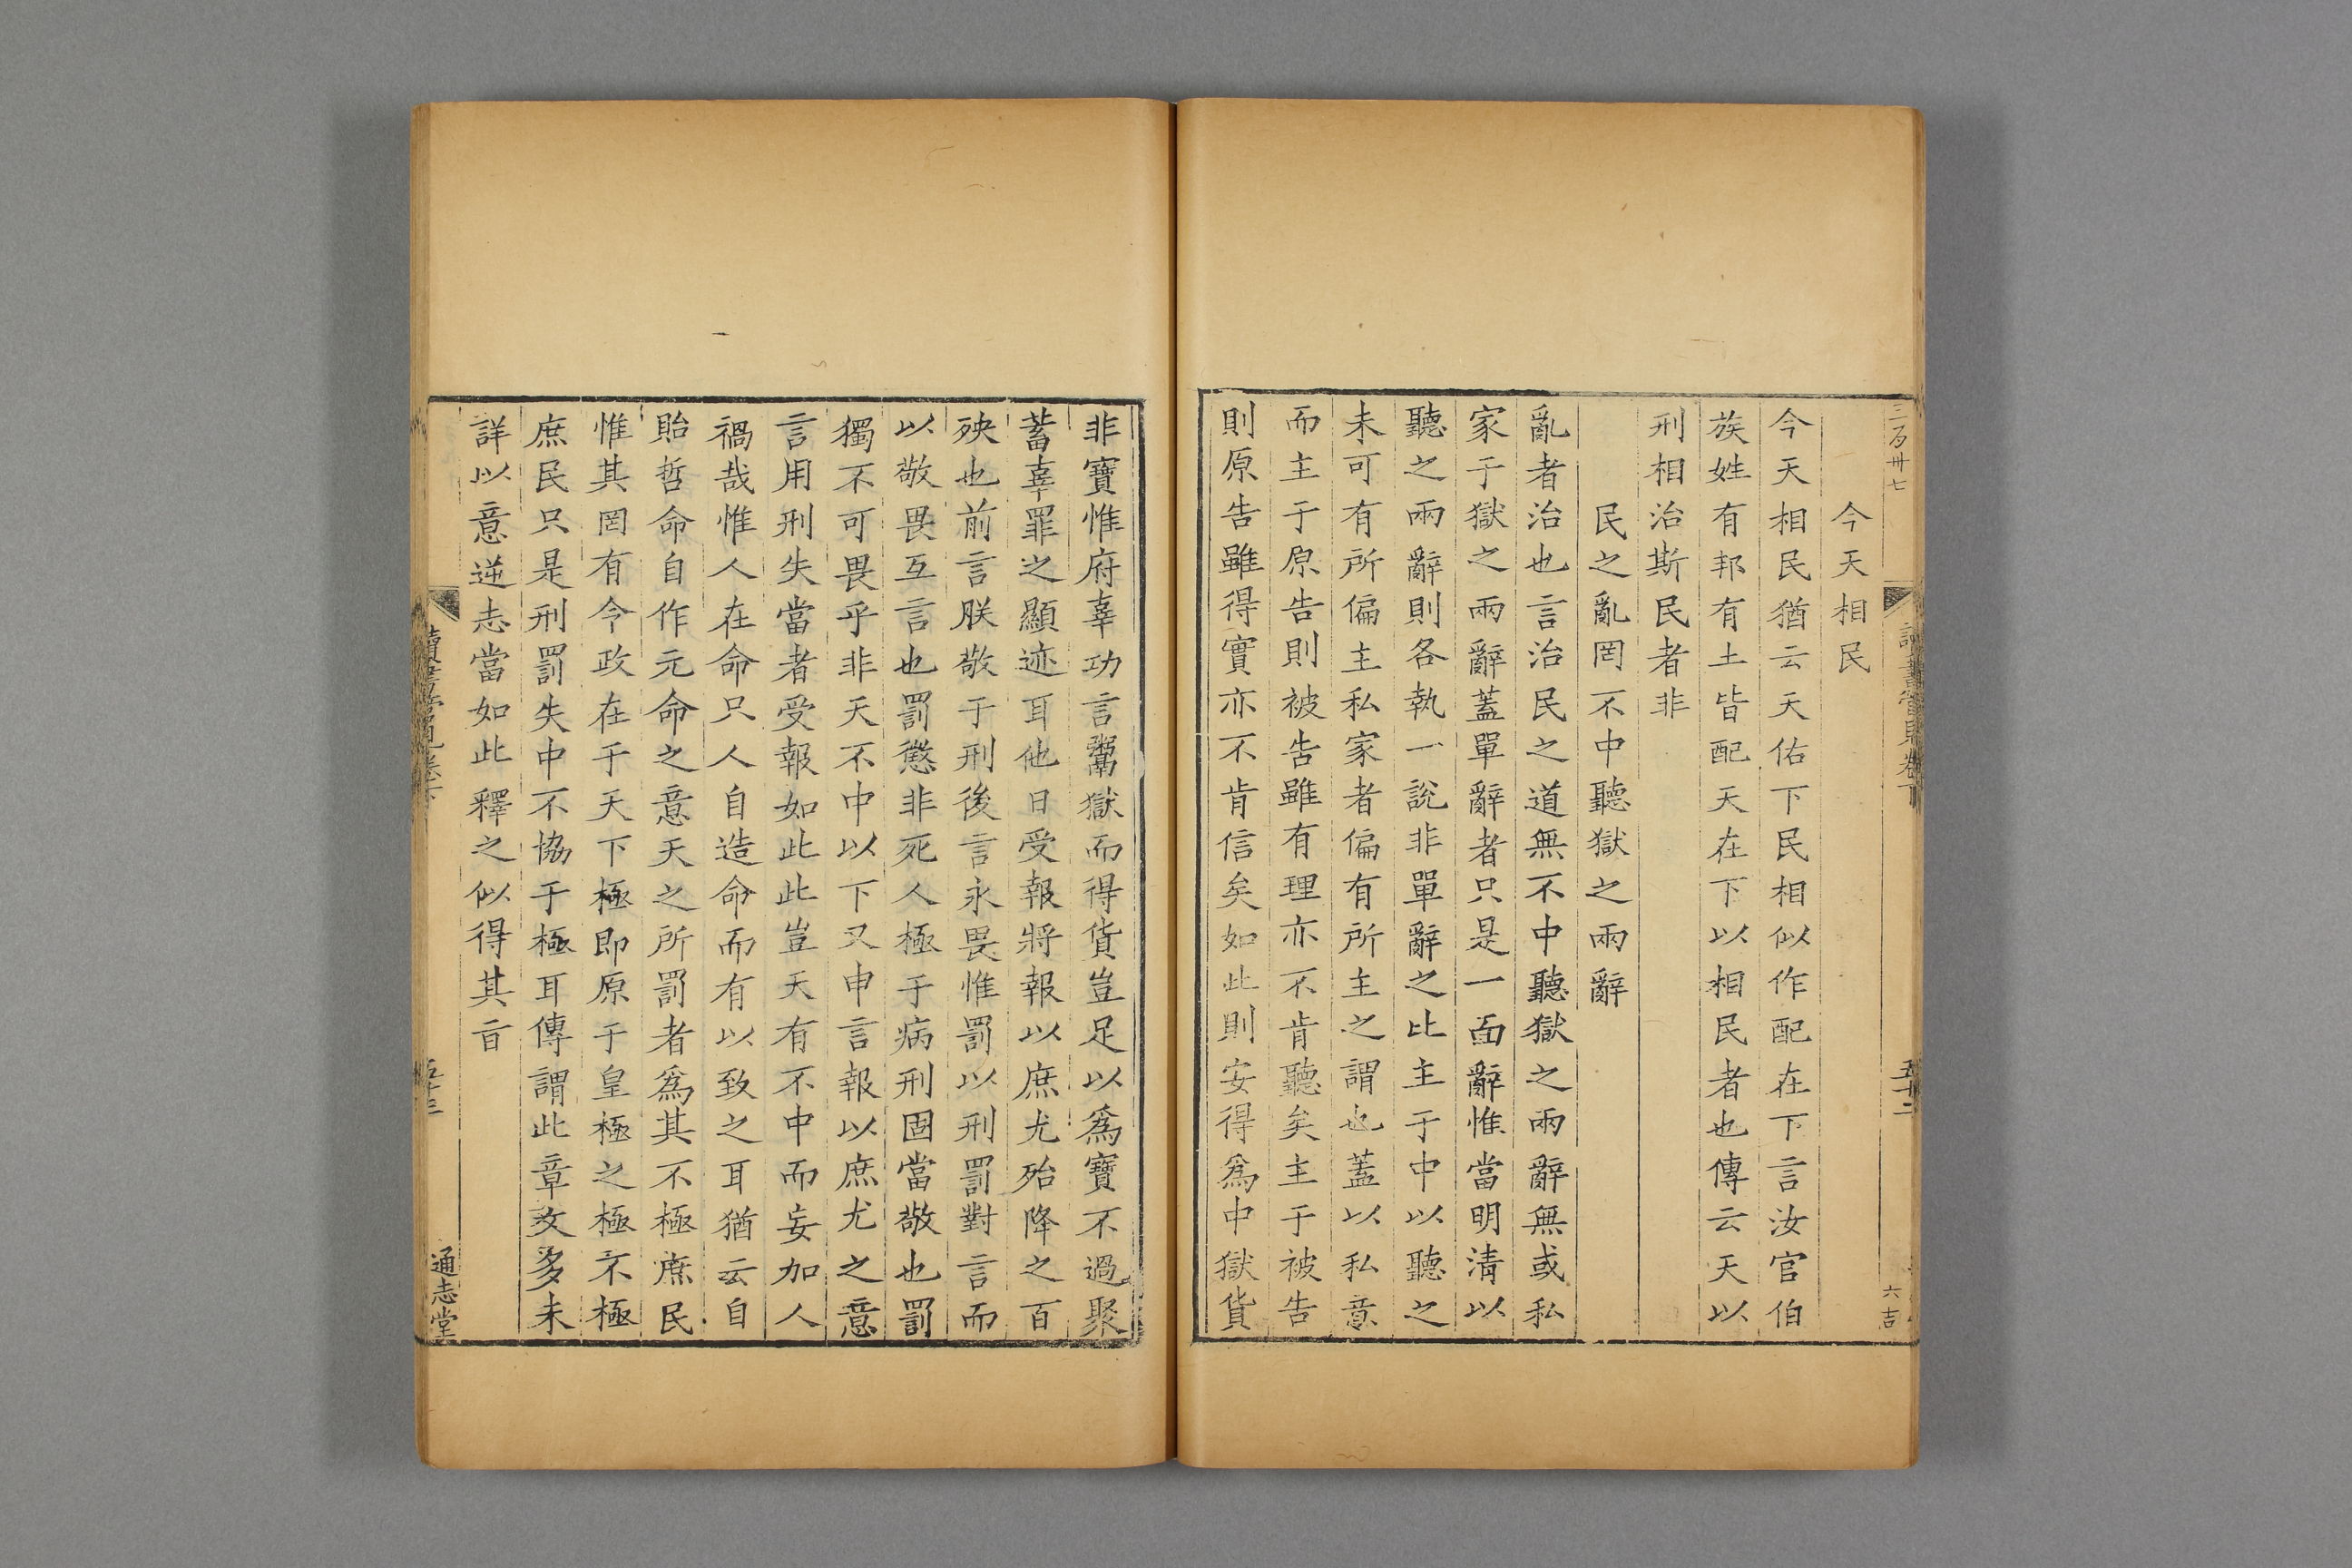 三百卅七
今天相民
今天相民猶云天佑下民相似作配在下言汝官伯
族姓有邦有土皆配天在下以相民者也傳云天以
刑相治斯民者非
民之亂罔不中聽獄之兩辭
亂者治也言治民之道無不中聽獄之兩辭無或私
家于獄之兩辭蓋單辭者只是一面辭惟當明清以
聽之兩辭則各執一說非單辭之比主于中以聽之
未可有所偏主私家者偏有所主之謂也蓋以私意
而主于原告則被告雖有理亦不肯聽矣主于被告
則原告雖得實亦不肯信矣如此則安得爲中獄貨
非寶惟府辜功言鬻獄而得貨豈足以爲寶不過聚
蓄辜罪之顯迹耳他日受報將報以庶尤殆降之百
殃也前言朕敬于刑後言永畏惟罰以刑罰對言而
以敬畏互言也罰懲非死人極于病刑固當敬也罰
獨不可畏乎非天不中以下又申言報以庶尤之意
言用刑失當者受報如此此豈天有不中而妄加人
禍哉惟人在命只人自造命而有以致之耳猶云自
貽哲命自作元命之意天之所罰者爲其不極庶民
惟其罔有令政在于天下極即原于皇極之極不極
庶民只是刑罰失中不協于極耳傳謂此章文多未
詳以意逆志當如此釋之似得其旨
五十三
通志堂